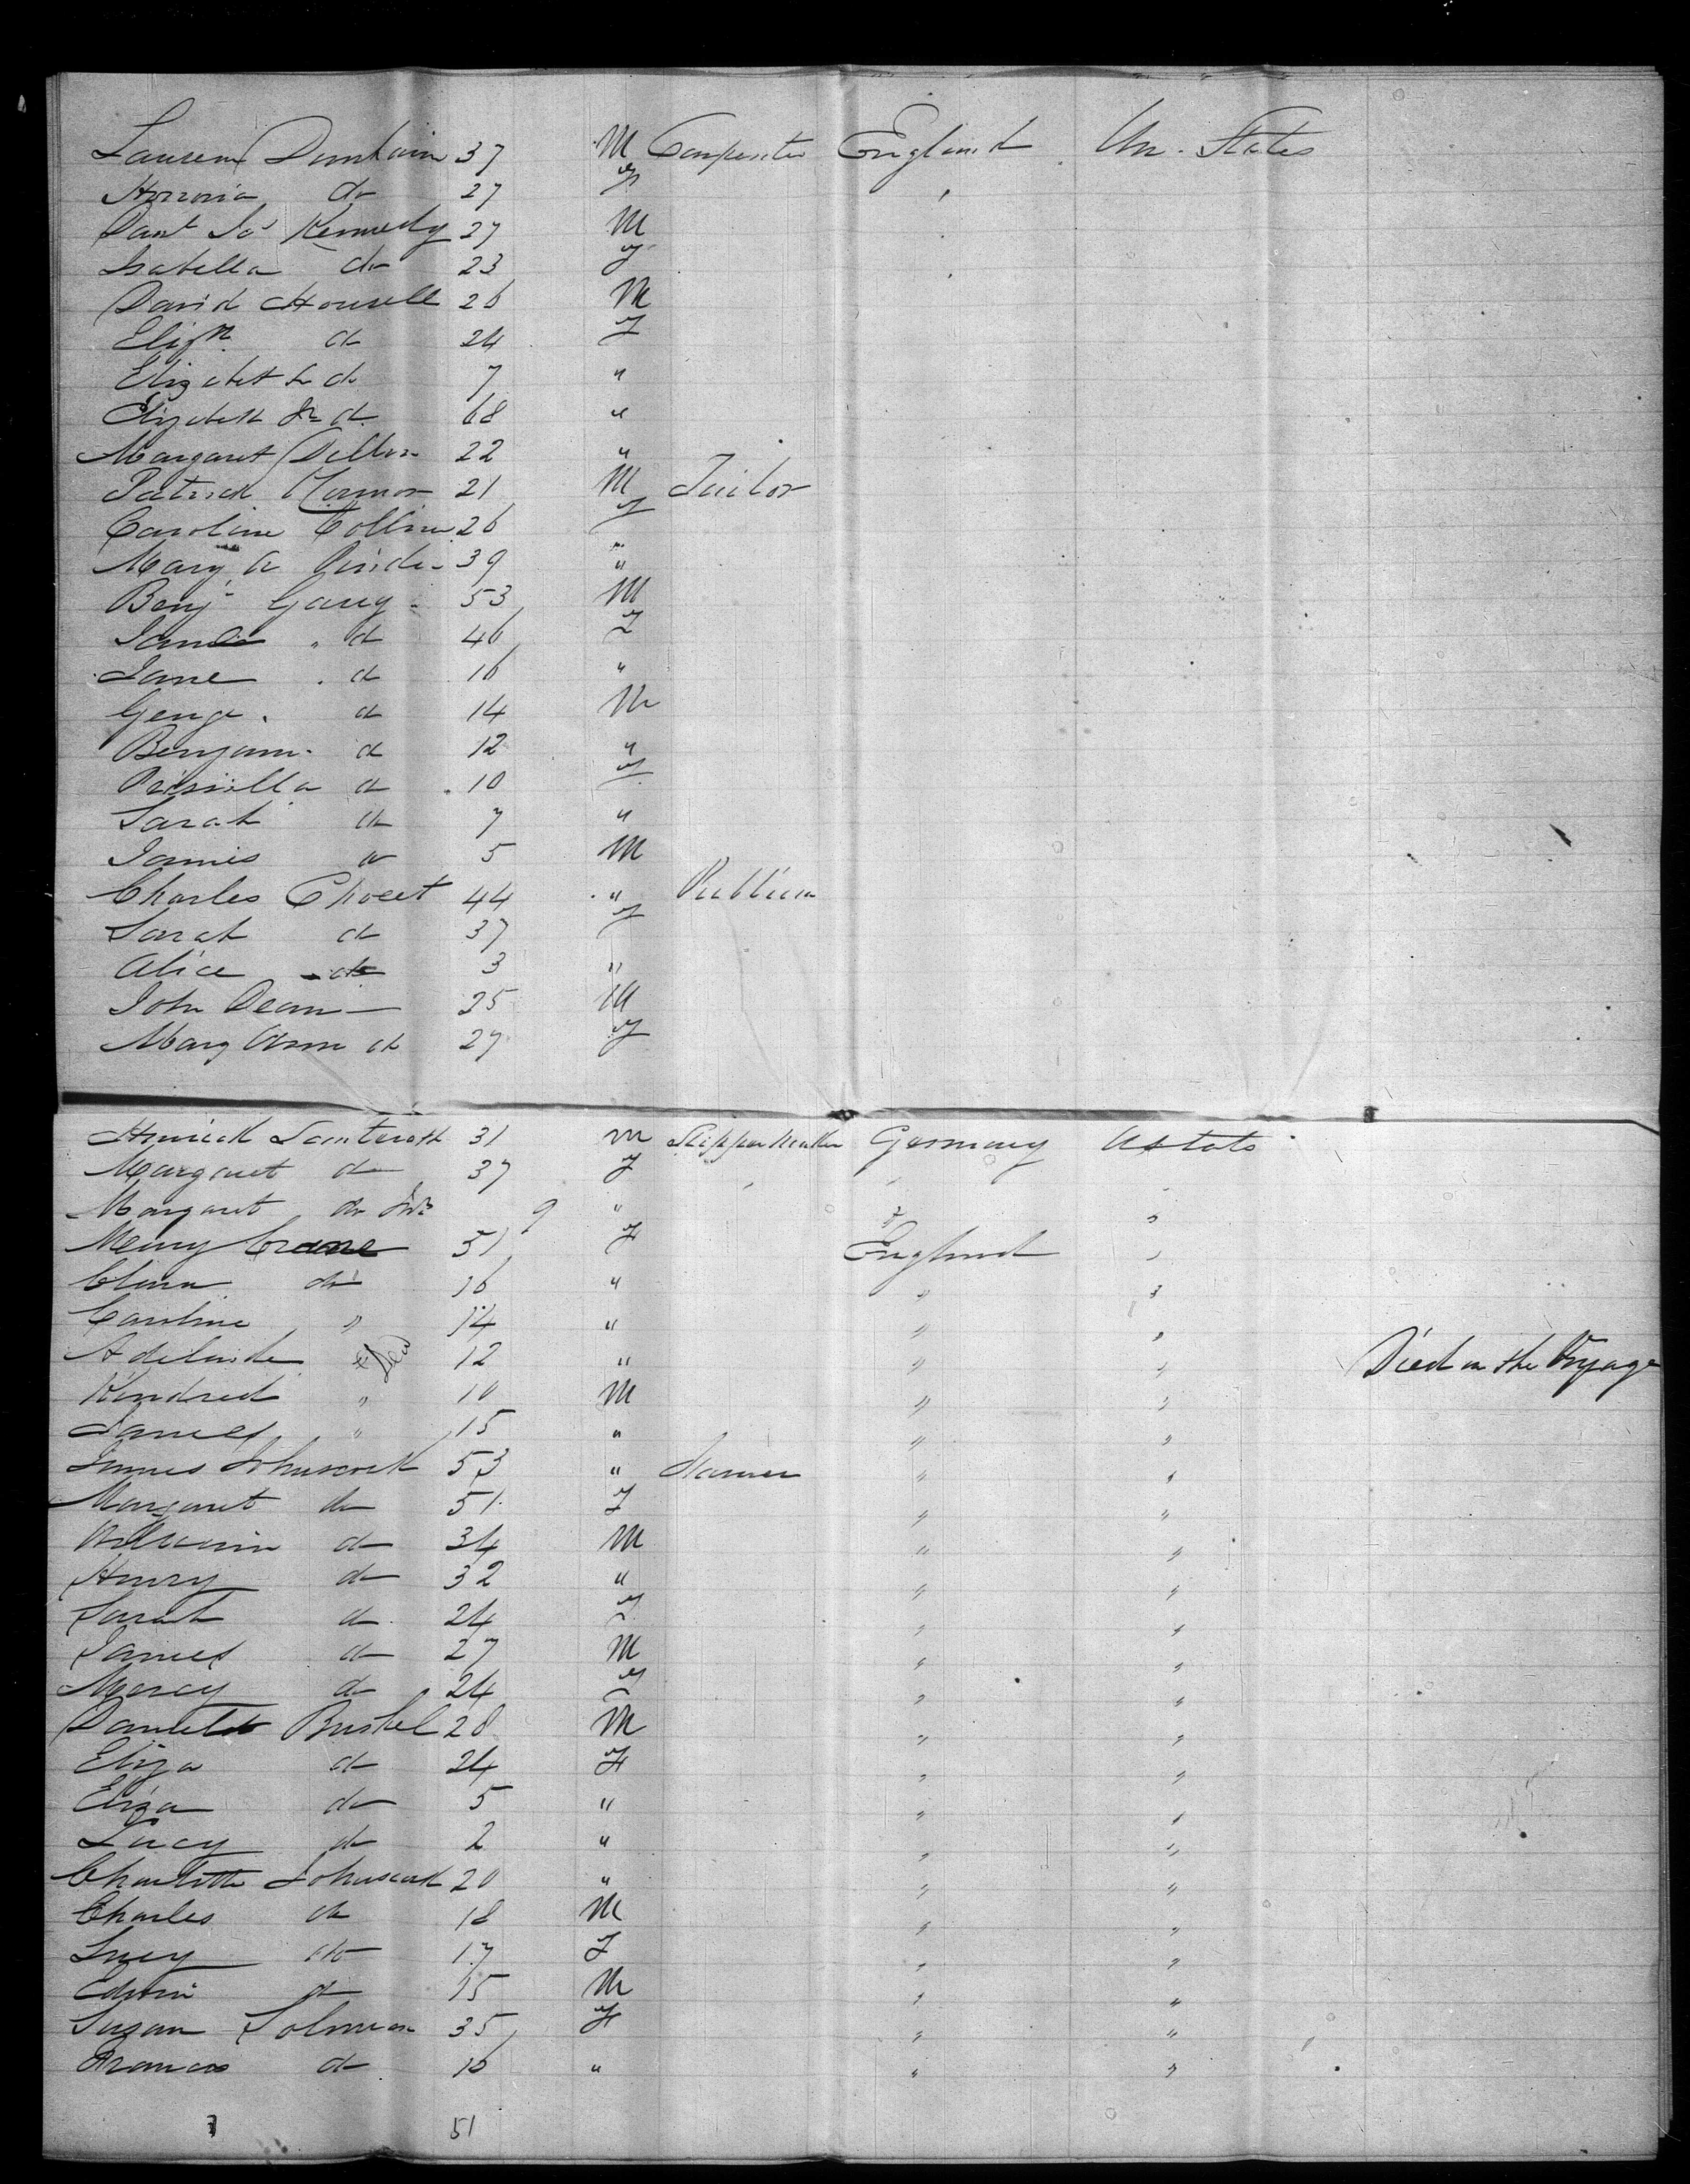 37 M Carpenter England Un. States
do 27 F
Kennedy 27 M
Isabella do 23 F
David Housell 26 M
Eliz do 24 F
Elizabeth do 7 "
Elizabeth Sr do 68 "
Margaret Dillon 22 "
Patrick 21 M Tailor
Caroline Collins 26 F
Mary A 39 "
Benj Garey 53 M
do 46 F
Jane do 16 "
George do 14 M
Benjam do 12 "
Prissilla do 10 F
Sarah do 7 "
James do 5 M
Charles 44 " Publican
Sarah do 37 F
Alice do 3 "
John Dean 25 M
Mary Ann do 27 F
31 M Germany U States
Margaret do 37 F
Margaret do Jnr 9 "
Mary Crane 51 F England "
Clara do 16 " " "
Caroline " 14 " " "
Adelaide 12 " " " Died on the Voyage
Kindred " 10 M " "
James " 15 " " "
James Johnscock 53 " Farmer " "
Margaret do 51 F " "
William do 34 M " "
Henry do 32 " " "
Sarah do 24 F " "
James do 27 M " "
Mercy do 24 F " "
Bushel 28 M " "
Eliza do 24 F " "
Eliza do 5 " " "
Lucy do 2 " " "
Charlotte Johnscock 20 " " "
Charles do 18 M " "
Lucy do 17 F " "
Edwin do 15 M " "
Susan Solomon 35 F " "
Frances do 16 " " "
51